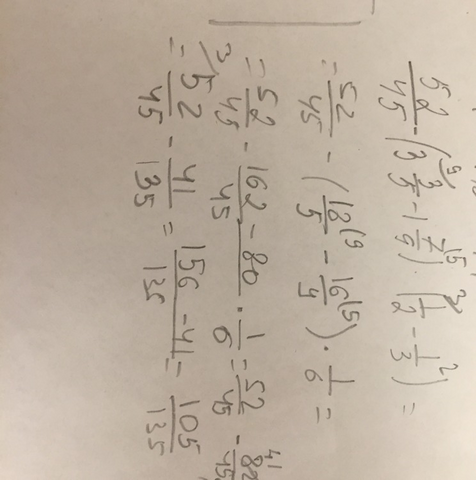 52/45 - (3 3/5 - 1 7/9) · (1/2 - 1/3) =
= 52/45 - (18/5 - 16/9) · 1/6 =
= 52/45 - 162 - 80/45 · 1/6 = 52/45 - 82/45
= 52/45 - 41/135 = 156 - 41/135 = 105/135